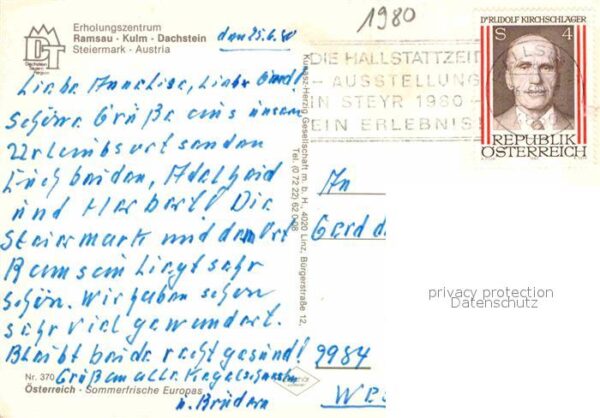 Erholungszentrum
Ramsau · Kulm · Dachstein
Steiermark · Austria
den 25.6.80
Liebe Annelise, Lieber Gerd!
Schöne Grüße aus unserem
Urlaubsort senden
Euch beiden, Adelheid
und Herbert! Die
Steiermark und der Ort
Ramsein liegt sehr
schön. Wir haben schon
sehr viel gewandert.
Bleibt beide recht gesund!
Grüße an alle
u. Brüdern
Nr. 370
Österreich - Sommerfrische Europas
Kunasz-Herzig Gesellschaft m. b. H., 4020 Linz, Bürgerstraße 12,
Tel. (0 72 22) 62 0 08
1980
DIE HALLSTATTZEIT
- AUSSTELLUNG
IN STEYR 1980
EIN ERLEBNIS!
DR RUDOLF KIRCHSCHLÄGER
S 4
REPUBLIK
ÖSTERREICH
An
Gerd
9984
privacy protection
Datenschutz